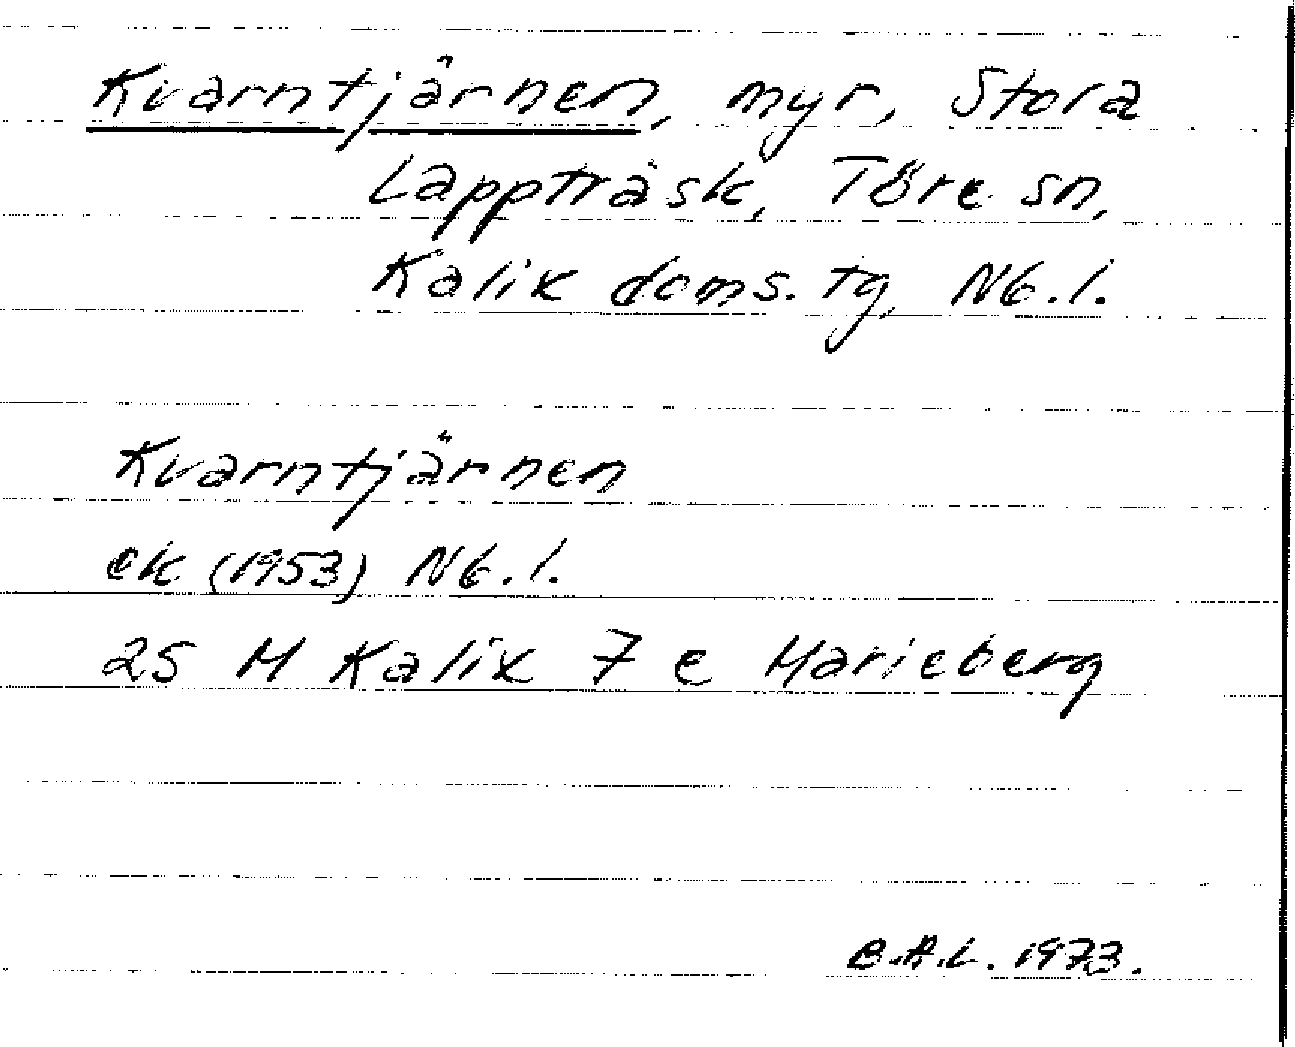 Kvarntjärnen, myr, Stora
Lappträsk, Töre sn,
Kalix doms. tg, Nb.l.
Kvarntjärnen
ek (1953) Nb.l.
25 M Kalix 7 e Marieberg
B.A.L. 1973.